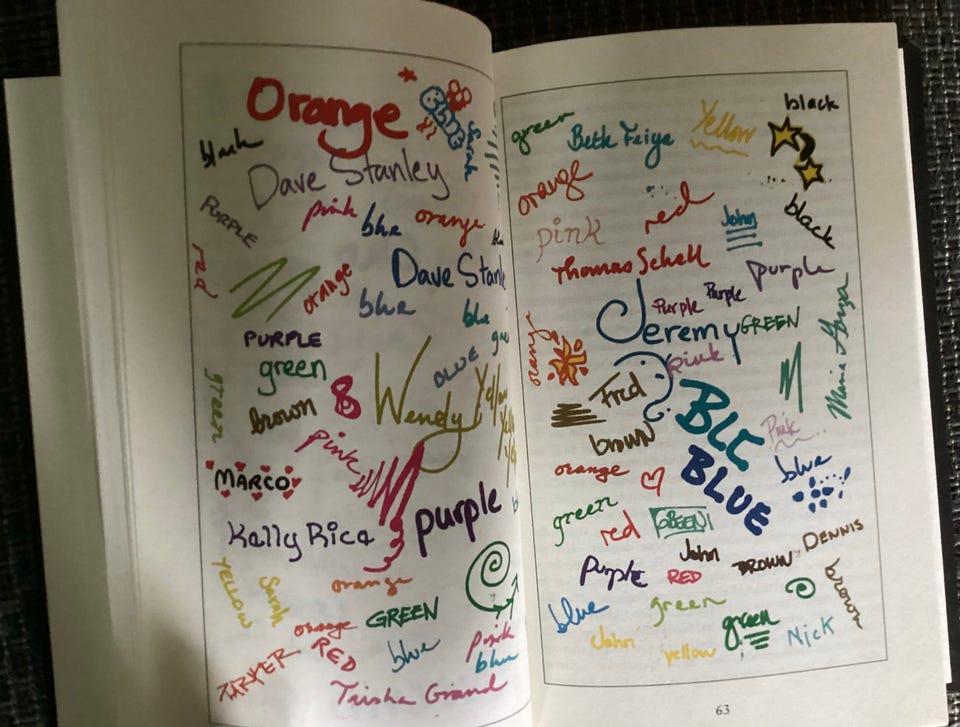 Orange
Sarah
black
Dave Stanley
PURPLE
pink
blue
orange
red
orange
Dave Stanl
blue
blue
PURPLE
BLUE
green
Wendy
Yellow
green
brown
pink
MARCO
purple
Kally Rica
YELLOW
Sarah
orange
GREEN
orange
RED
blue
pink
blue
PARKER
Trisha Grand
green
Beth Feiye
Yellow
black
orange
red
John
black
pink
Thomas Schell
purple
Purple
Purple
Jeremy
GREEN
orange
pink
Fred
brown
BLUE
Pink
orange
BLUE
blue
green
red
GREEN
John
DENNIS
Purple
RED
BROWN
brown
blue
green
green
John
yellow
Nick
63